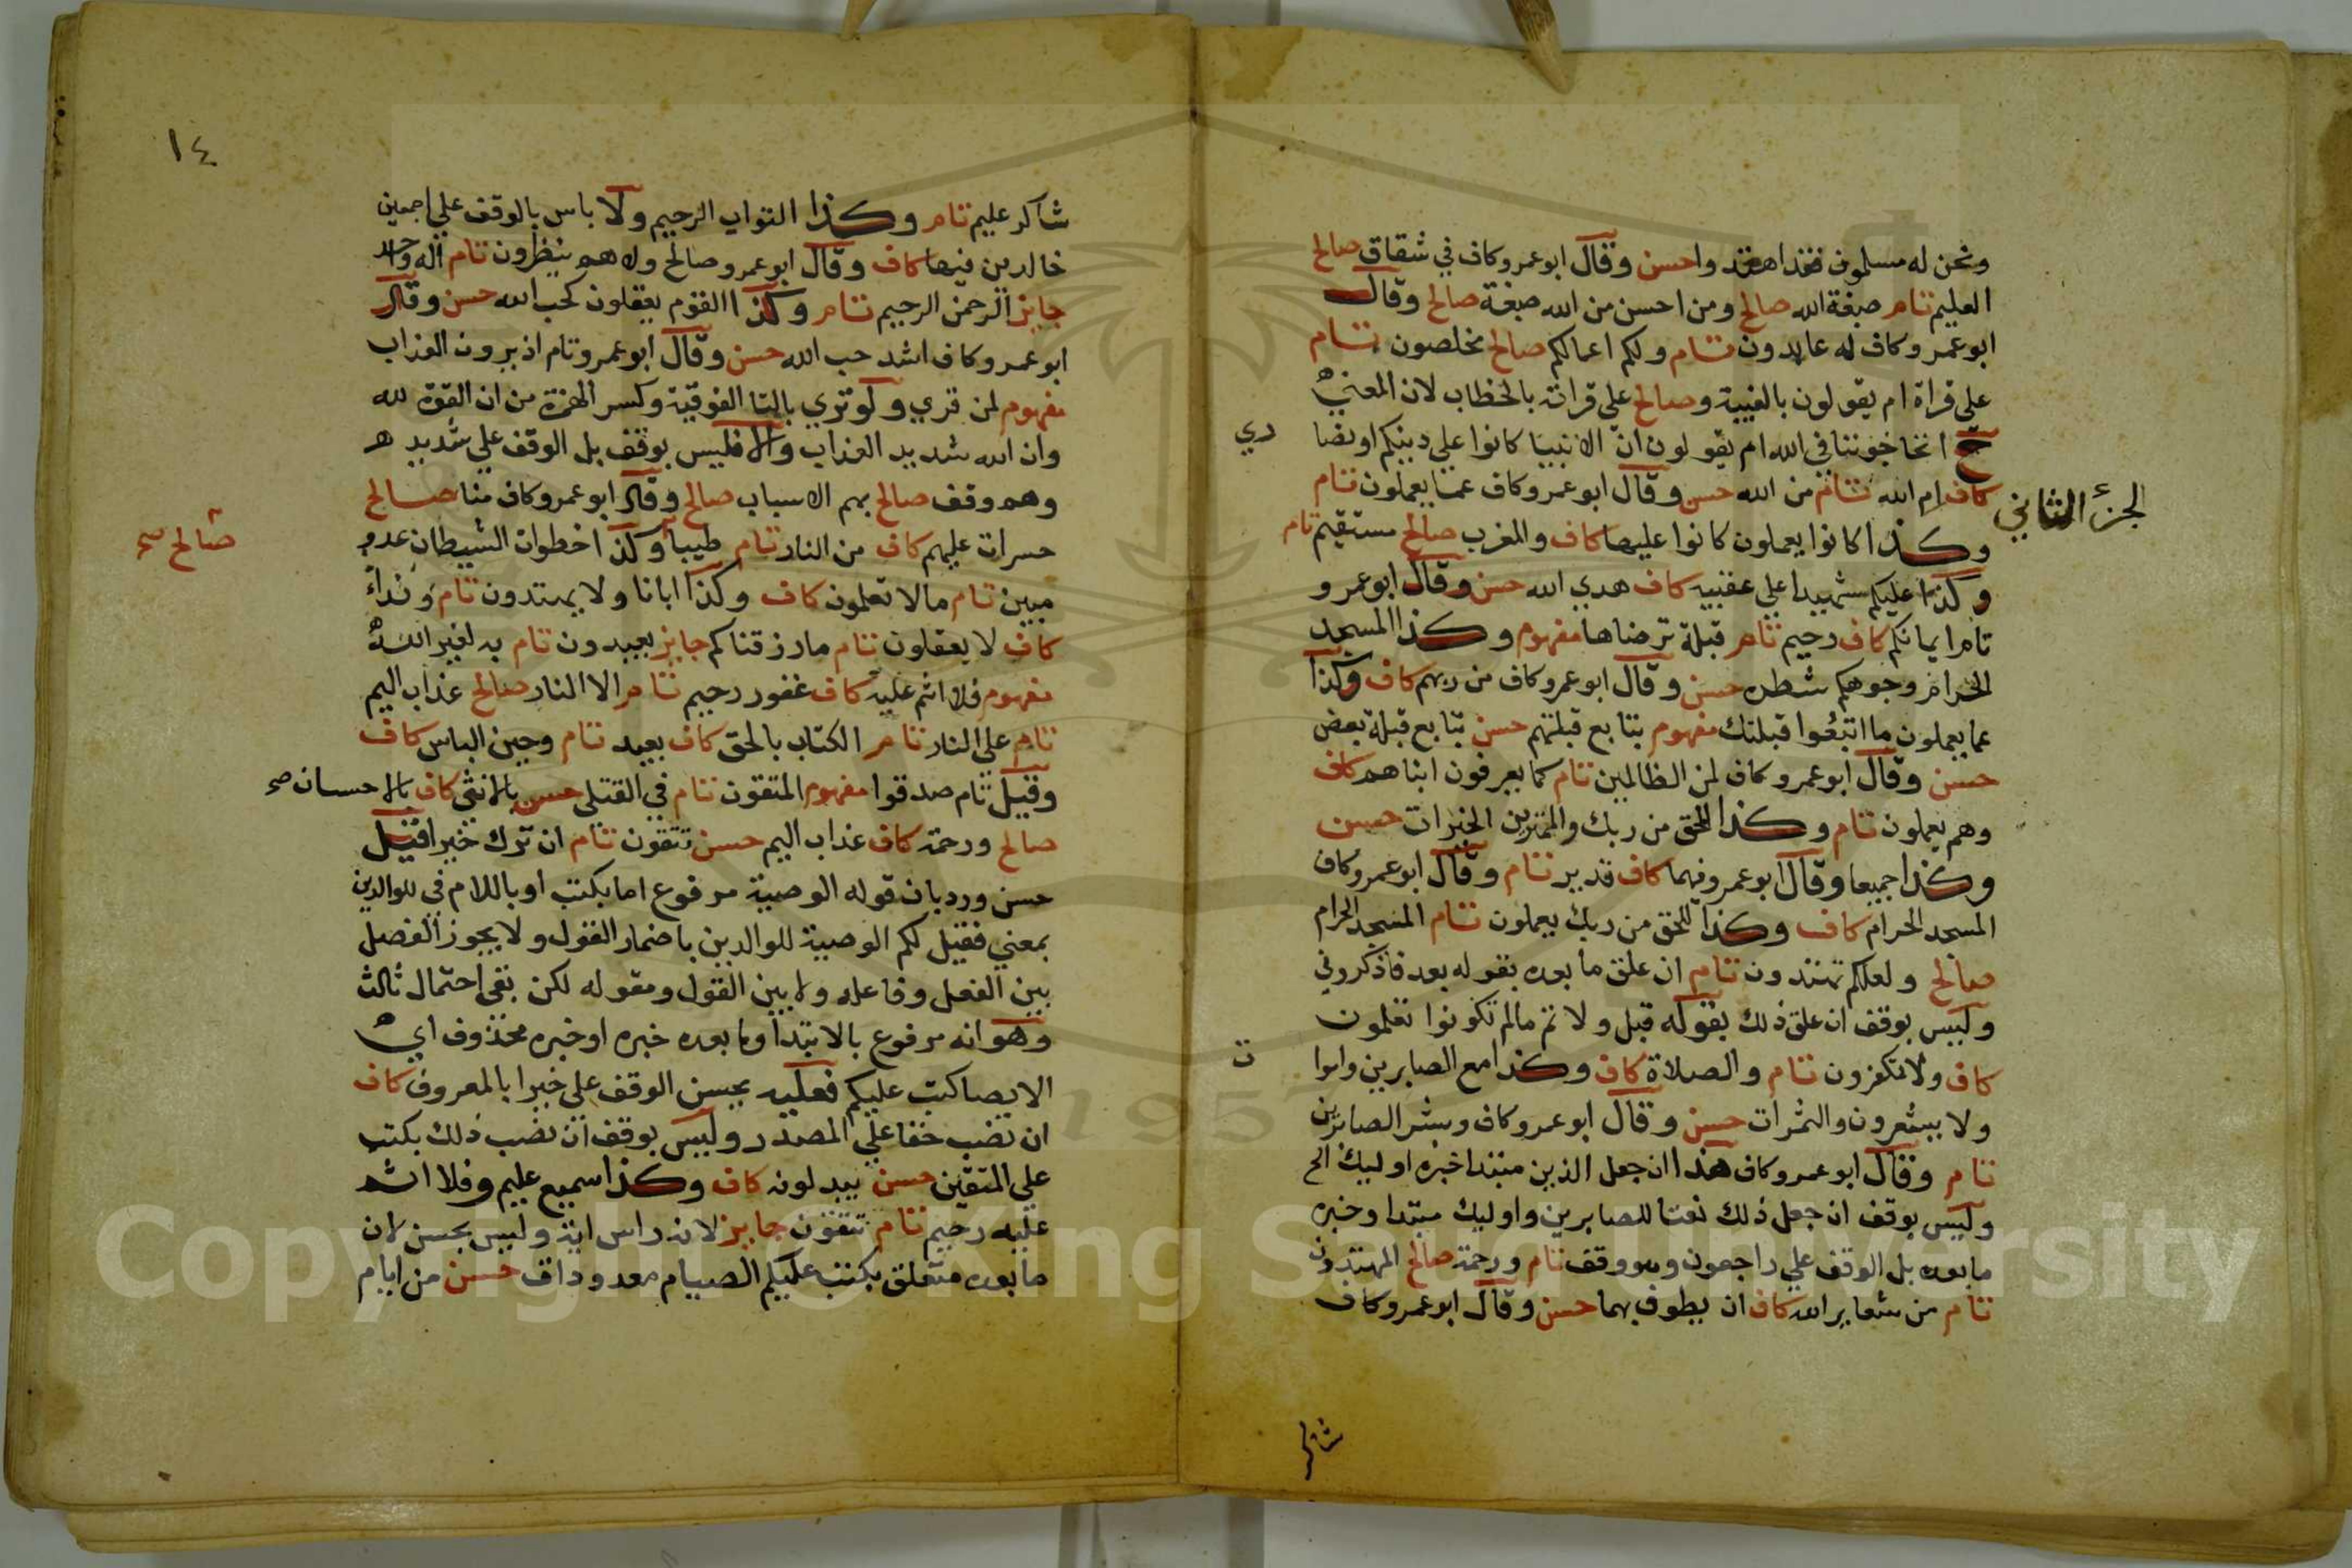 ونحن له مسلمون تام فقد اهتدوا حسن وقال ابو عمرو كاف في شقاق صالح
العليم تام صبغة الله صالح ومن احسن من الله صبغة صالح وقال
ابو عمرو كاف له عابدون تام ولكم اعمالكم صالح مخلصون تام
على قراة ام يقولون بالغيبة وصالح على قراته بالخطاب لان المعني
ح اتحاجوننا في الله ام يقولون ان الانبيا كانوا على دينكم او نصا
ري
الجزء الثاني
كاف ام الله تام من الله حسن وقال ابو عمرو كاف عما يعملون تام
وكذا كانوا يعملون كانوا عليها كاف والمغرب صالح مستقيم تام
وكذا عليكم شهيدا على عقبيه كاف هدي الله حسن وقال ابو عمرو
تام ايمانكم كاف رحيم تام قبلة ترضاها مفهوم وكذا المسجد
الحرام وجوهكم شطره حسن وقال ابو عمرو كاف من ربهم كاف وكذا
عما يعملون ما اتبعوا قبلتك مفهوم بتابع قبلتهم حسن بتابع قبلة بعض
حسن وقال ابو عمرو كاف لمن الظالمين تام كما يعرفون ابناهم كاف
وهم يعملون تام وكذا الحق من ربك والممترين الخيرات حسن
وكذا جميعا وقال ابو عمرو فيهما كاف قدير تام وقال ابو عمرو كاف
المسجد الحرام كاف وكذا للحق من ربك يعملون تام المسجد الحرام
صالح ولعلكم تهتدون تام ان علق ما بعده بقوله بعد فاذكروني
وليس بوقف ان علق ذلك بقوله قبل ولاتم مالم تكونوا تعلمون
كاف ولا تكفرون تام والصلاة كاف وكذا مع الصابرين واموا
ت
ولا يشعرون والثمرات حسن وقال ابو عمرو كاف وبشر الصابرين
تام وقال ابو عمرو كاف هذا ان جعل الذين مبتدا خبره اوليك الخ
وليس بوقف ان جعل ذلك نعتا للصابرين واوليك مبتدا وخبره
ما بعده بل الوقف على راجعون وهو وقف تام ورحمة صالح المهتدون
تام من شعاير الله كاف ان يطوف بهما حسن وقال ابو عمرو كاف
شاكر
١٤
شاكر عليم تام وكذا التواب الرحيم ولا باس بالوقف علي اجمعين
خالدين فيها كاف وقال ابو عمرو صالح ولا هم ينظرون تام اله واحد
جايز الرحمن الرحيم تام وكذا القوم يعقلون كحب الله حسن وقال
ابو عمرو كاف اشد حب الله حسن وقال ابو عمرو تام اذ يرون العذاب
مفهوم لمن قري ولو تري بالتا الفوقية وكسر الهمزة من ان القوة لله
وان الله شديد العذاب والا فليس بوقف بل الوقف علي شديد هـ
وهم وقف صالح بهم الاسباب صالح وقال ابو عمرو كاف منا صالح
حسرات عليهم كاف من النار تام طيبا وكذا خطوات الشيطان عدو
صالح صح
مبين تام مالا تعلمون كاف وكذا ابانا ولا يهتدون تام ونداء
كاف لا يعقلون تام ما رزقناكم جايز تعبدون تام به لغير الله
مفهوم فلا اثم عليه كاف غفور رحيم تام الا النار صالح عذاب اليم
تام علي النار تام الكتاب بالحق كاف بعيد تام وحين الباس كاف
وقيل تام صدقوا مفهوم المتقون تام في القتلى حسن بالانثي كاف بالاحسان صح
صالح ورحمة كاف عذاب اليم حسن تتقون تام ان ترك خيرا قيل
حسن ورد بان قوله الوصية مرفوع اما بكتب او باللام في للوالدين
بمعني فقيل لكم الوصية للوالدين باضمار القول ولا يجوز الفصل
بين الفعل وفاعله ولا بين القول ومقوله لكن بقي احتمال ثالث
وهو انه مرفوع بالابتدا وما بعده خبره او خبره محذوف اي
الايصا كتب عليكم فعليه يحسن الوقف على خيرا بالمعروف كاف
ان نصب حقا علي المصدر وليس بوقف ان نصب ذلك بكتب
علي المتقين حسن يبدلونه كاف وكذا سميع عليم وفلا اثم
عليه رحيم تام تتقون جايز لانه راس اية وليس بحسن لان
ما بعده متعلق بكتب عليكم الصيام معدودات حسن من ايام
Copyright © King Saud University
1957